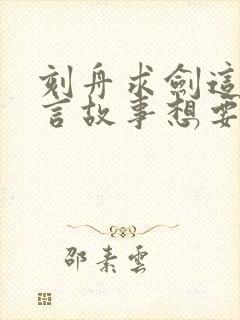 刻舟求劍這
言故事想要
邵素雲